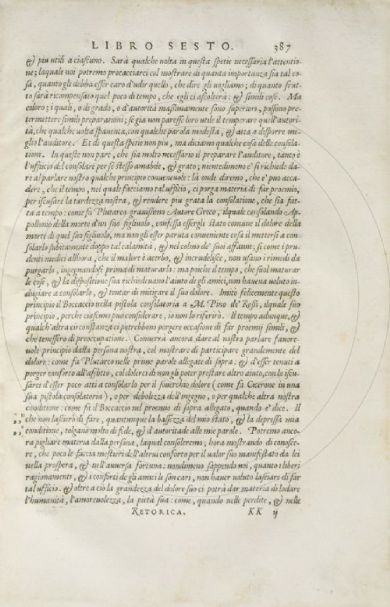 LIBRO SESTO. 387
& piu utili a ciascuno. Sarà qualche uolta in questa spetie necessaria l'attentio-
ne; laquale noi potremo procacciarci col mostrare di quanta importanza sia tal co-
sa, quanto gli debba esser caro d'udir quello, che dire gli uogliamo; di quanto frut-
to sarà ricompensato quel poco di tempo, che egli ci ascolterà; & simili cose. Ma
coloro; i quali, o di grado, o d'autorità massimamente sono superiori, possono pre-
termettere simili preparationi; se già non paresse loro utile il temperare quell'autori-
tà, che qualche uolta spauenta, con qualche parola modesta, & atta a disporre me-
glio l'auditore. Et di questa spetie non piu, ma diciamo qualche cosa delle consola-
tioni. In queste non pare, che sia molto necessario il preparare l'auditore, tanto è
l'ufficio del consolare per se stesso amabile, & grato; nientedimeno e' si richiede da-
re al parlare nostro qualche principio conueneuole: là onde daremo, che e' può acca-
dere, che il tempo, nel quale facciamo tal ufficio, ci porga materia di far proemio,
per iscusare la tardezza nostra, & rendere piu grata la consolatione, che sia fat-
ta a tempo: come fa' Plutarco grauissimo Autore Greco, ilquale consolando Ap-
pollonio della morte d'un suo figliuolo, confessa essergli stato comune il dolore della
morte di quel suo figliuolo, ma non gli esser paruta conueniente cosa il mettersi a con-
solarlo subitamente dopo tal calamità, & nel colmo de' suoi affanni; si come i pru-
denti medici allhora, che il malore è acerbo, & incrudelisce, non usano i rimedi da
purgarlo, ingegnandosi prima di maturarlo: ma poiche il tempo, che suol maturar
le cose, & la dispositione sua richiedeuano l'aiuto de gli amici, non haueua uoluto in-
dugiare a consolarlo, & tentar di mitigare il suo dolore. Imitò felicemente questo
principio il Boccaccio nella pistola consolatoria a M. Pino de' Rossi, ilquale suo
principio, perche ciascuno può considerare, io non lo riferirò. Il tempo adunque, &
qualch'altra circonstanza ci potrebbono porgere occasione di far proemij simili, &
che tenessero di preoccupatione. Conuerrà ancora dare al nostro parlare fauore-
uole principio dalla persona nostra, col mostrare di participare grandemente del
dolore: come fa' Plutarco nelle prime parole allegate di sopra: & d'esser uenuti a
porger conforto all'afflitto, col dolerci di non gli poter prestare altro aiuto, con lo iscu-
sarci d'esser poco atti a consolarlo per il souerchio dolore (come fa Cicerone in una
sua pistola consolatoria), o per debolezza dell'ingegno, o per qualche altra nostra
conditione: come fa il Boccaccio nel proemio di sopra allegato, quando e' dice. Il
che non lascierò di fare, quantunque la bassezza del mio stato, & la depressa mia
conditione, tolgano molto di fede, & d'autorità alle mie parole. Potremo anco-
ra pigliare materia dalla persona, laqual consoleremo, hora mostrando di conosce-
re, che poco le faccia mestieri dell'altrui conforto per il ualor suo manifestato da lei
nella prospera, & nell'auuersa fortuna: nondimeno sappiendo noi, quanto i liberi
ragionamenti, & i conforti de gli amici le sien cari, non hauer uoluto lasciare di far
tal ufficio. & oltre a ciò la grandezza del dolore suo ci potrà dar materia di lodare
l'humanità, l'amoreuolezza, la pietà sua: come, quando nelle perdite, & nelle
RETORICA. KK ij